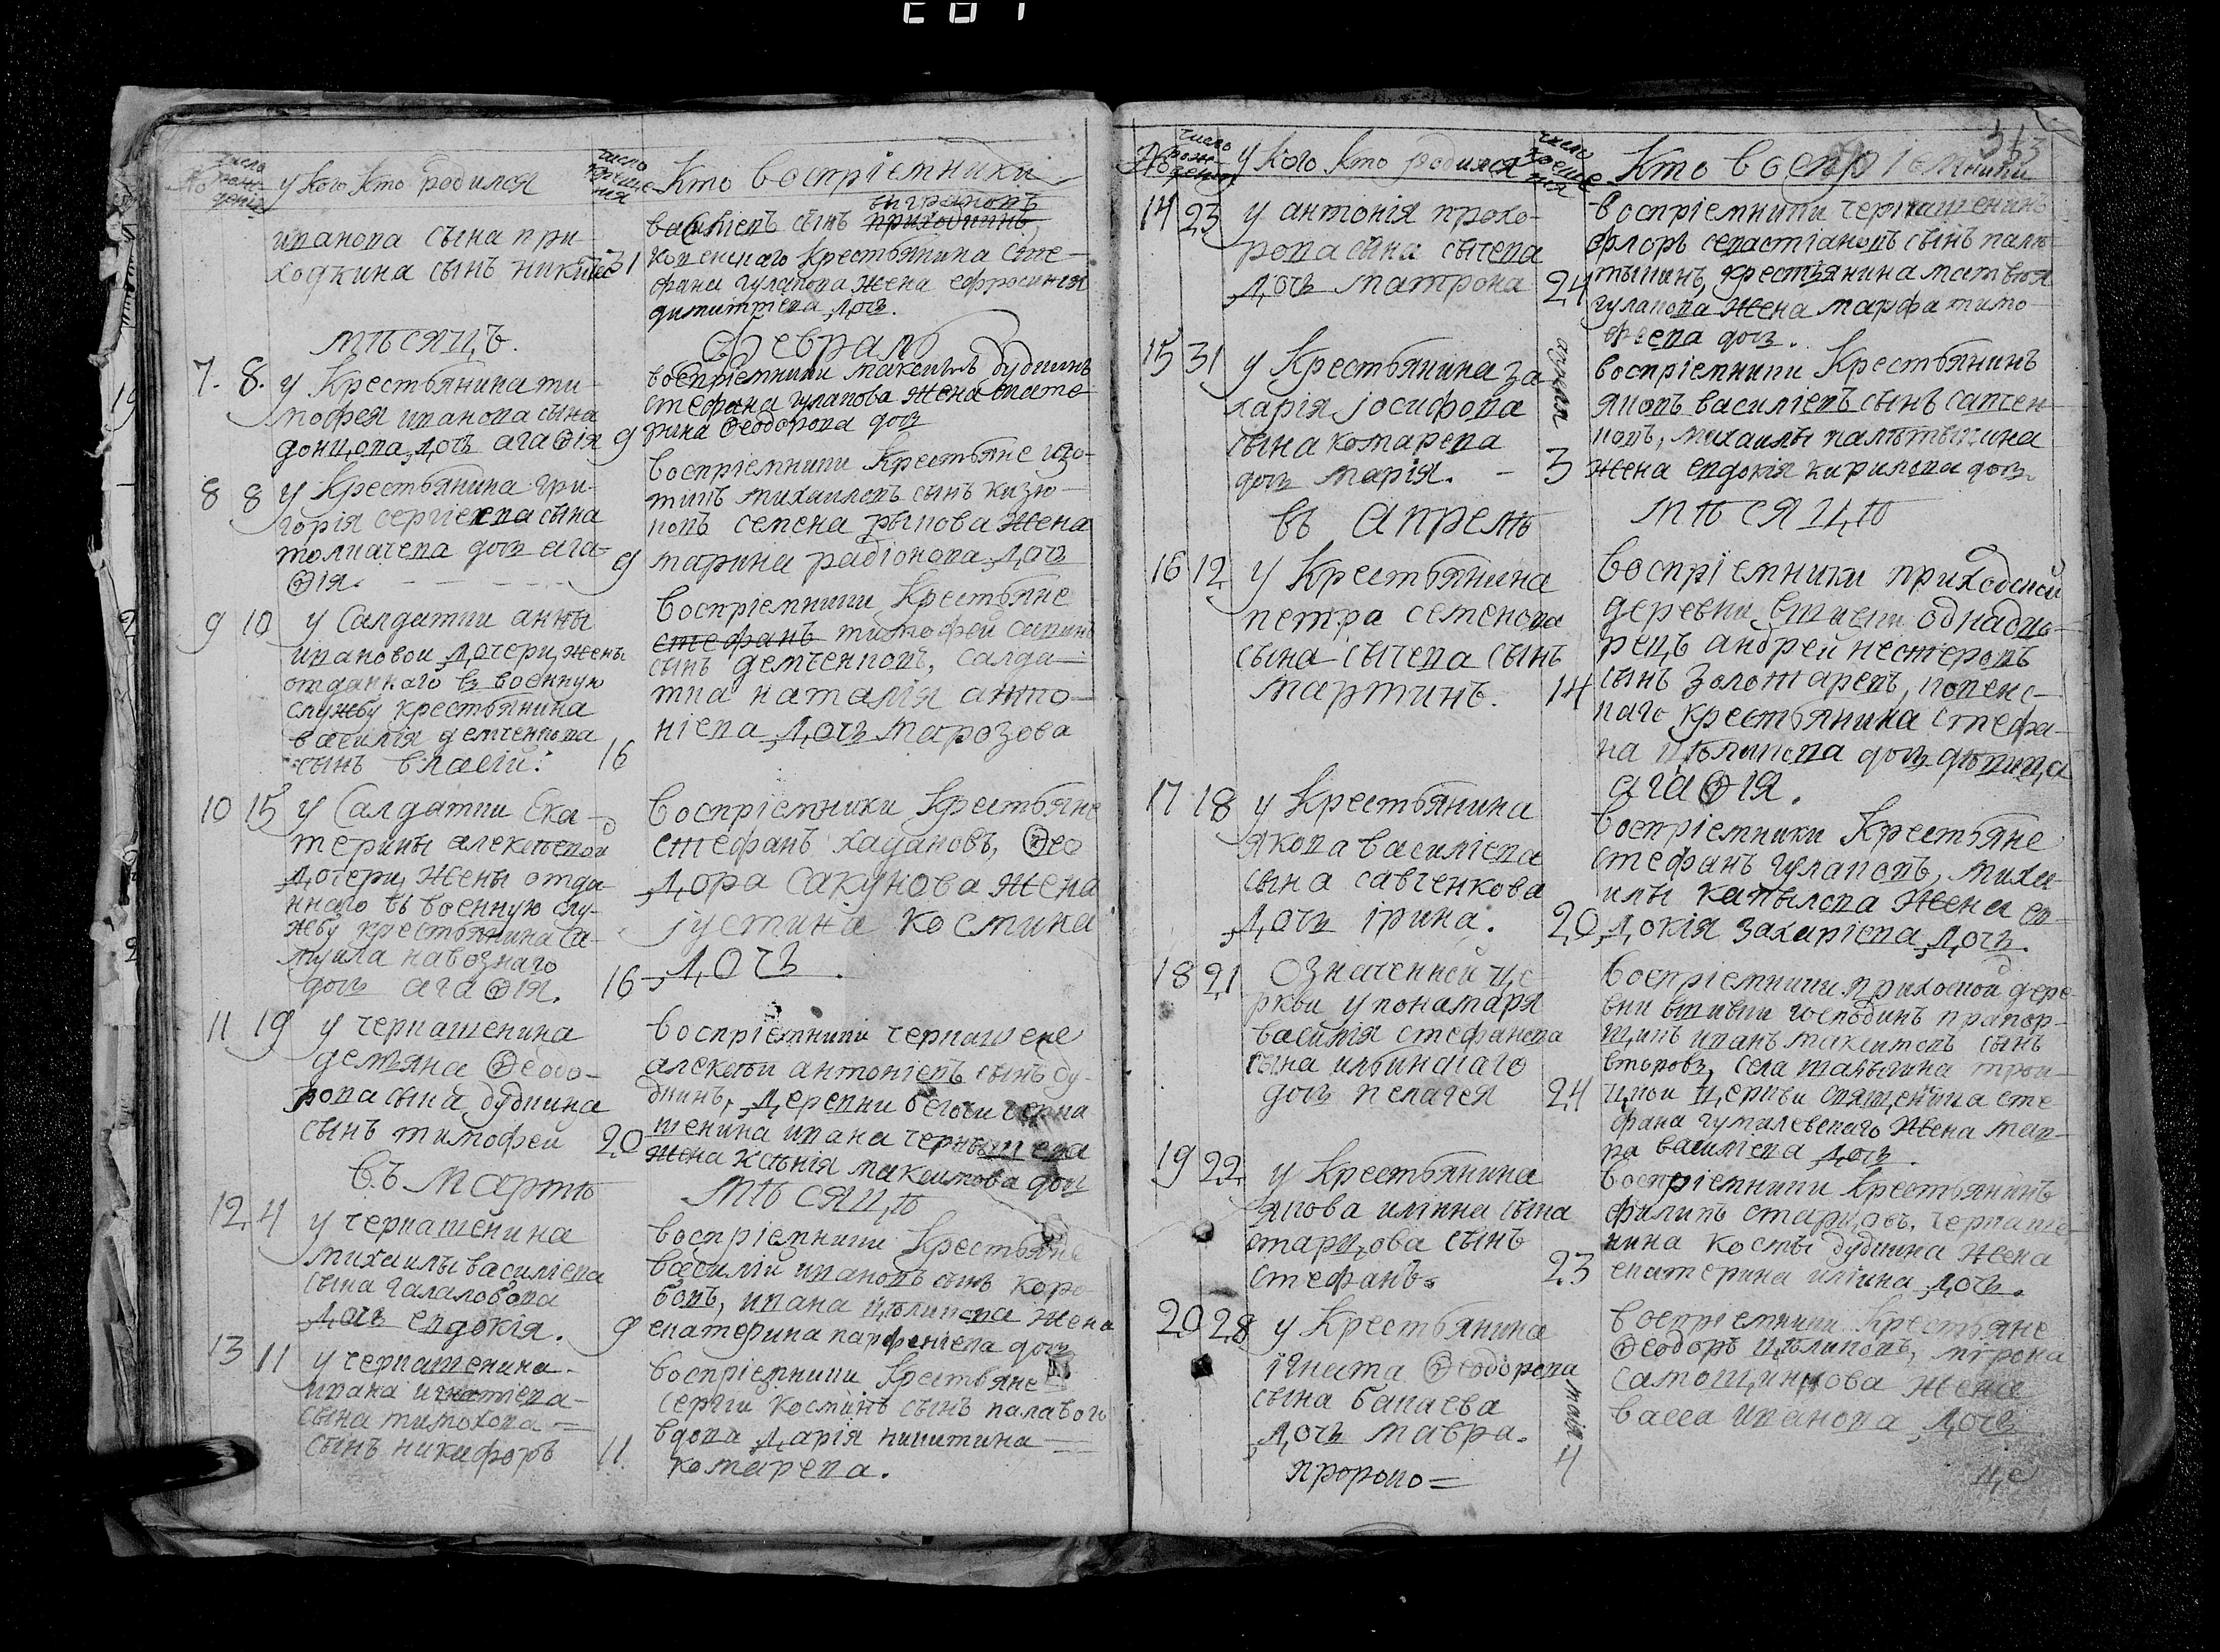 число рож-
№ дения
у кого кто родился
число
креще
ния
Кто воспріемники
ивановa сына при-
ходкина сынъ никита 31
сигратовъ
василіевъ сынъ приходкинъ,
крестьянина сте-
фана гулакова жена ефросинія
димитріева дочь.
мѣсяцъ. Февраль
7. 8. у Крестьянина ти-
мофея иванова сына
донцова дочь агаѳія 9
воспріемники максимъ дудкинъ
стефана гулакова жена екате
рина ѳеодорова дочь
8 8 у Крестьянина гри-
горія сергіева сына
толмачева дочь ага-
ѳія. 9
воспріемники Крестьяне изо-
тимъ михаиловъ сынъ кизю-
ковъ семена рыкова жена
марина радіонова дочь
9 10 у Салдатки анны
ивановои дочери, жены
отданнаго въ военную
службу крестьянина
василія демченкова
сынъ власій. 16
воспріемники Крестьяне
стефанъ тимофеи савинъ
сынъ демченковъ, салда-
тка наталія анто-
ніева дочь марозова
10 15 у Салдатки Ека-
терины алексѣевои
дочери, жены отда-
ннаго въ военную слу-
жбу крестьянина са-
муила навознаго
дочь агаѳія. 16
воспріемники Крестьяне
стефанъ хадановъ, Ѳео
дора сакунова жена
іустина костина
дочь.
11 19 у черкашенина
демьяна Ѳеодо-
рова сына дудкина
сынъ тимофеи 20
воспріемники черкашене
алексѣи антоніевъ сынъ ду-
дкинъ, деревни беговки черка
шенина ивана чернышева
жена ксѣнія максимова дочь
въ мартѣ мѣсяцѣ
12 4 у черкашенина
михаилы василіева
сына галаловова
дочь евдокія. 9
воспріемники Крестьяне
василій ивановъ сынъ коро
бовъ, ивана цѣликова жена
екатерина парфеніева дочь
13 11 у черкашенина
ивана игнатіева-
сына тимохова =
сынъ никифоръ 11
воспріемники Крестьяне
сергіи косминъ сынъ
вдова дарія никитина =
комарева.
313
число
рож-
№ дения
у кого кто родился
число
креще
ния
Кто воспріемники
14 23 у антонія прохо-
рова сына сычева
дочь матрона 24
воспріемники черкашенинъ
флоръ севастіановъ сынъ палю
тыкинъ, крестьянина матвѣя
гулакова жена марфа тимо-
фѣева дочь.
15 31 у Крестьянина за
харія іосифова
сына комарева
дочь марія. - 3
апрѣля
воспріемники Крестьянинъ
яковъ василіевъ сынъ савчен
ковъ, михаилы палютыкина
жена евдокія кирилова дочь.
въ апрелѣ мѣсяцѣ
16 12 у Крестьянина
петра семенова
сына сычева сынъ
мартинъ. 14
воспріемники приходской
деревни вшивки однадво-
рецъ андрей нестеровъ
сынъ золотаревъ,
крестьянина стефа-
на цѣликова дочь дѣвица
агаѳія.
17 18 у Крестьянина
якова василіева
сына савченкова
дочь ірина. 20
воспріемники Крестьяне
стефанъ гулаковъ, миха
илы капылова жена ев-
докія захаріева дочь.
18 21 Означенной це
ркви у понамаря
василія стефанова
сына ильинскаго
дочь пелагея 24
воспріемники приходной дере
вни вшивки господинъ прапор-
щикъ иванъ максимовъ сынъ
второвъ, села шатыкина трои-
цкои церкви священика сте
фана гумилевскаго жена мав-
ра василіева дочь.
19 22 у Крестьянина
якова илінна сына
старцова сынъ
стефанъ. 23
воспріемники Крестьянинъ
филипъ старцовъ, черкаше
нина косты дудкина жена
екатерина иліина дочь.
20 28 у Крестьянина
ігната Ѳеодорова
сына бакаева
дочь мавра. 4
маія
воспріемники Крестьяне
Ѳеодоръ цѣликовъ, мѵрона
самощинкова жена
васса иванова дочь
пророко=
це